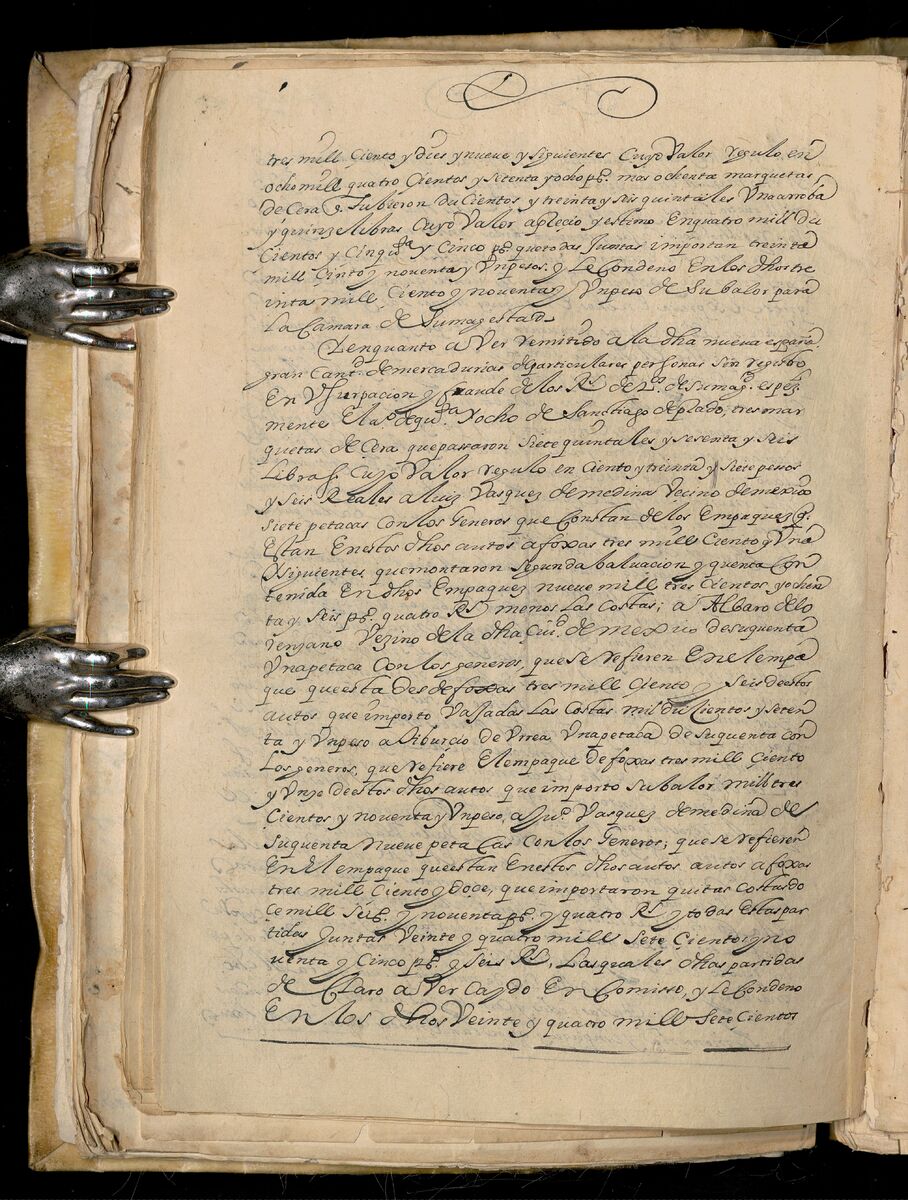 tres mill ciento y dies y nueve y siguientes Cuyo Valor regulo en
ocho mill quatro Cientos y setenta y ocho ps. mas ochenta marquetas
de Cera q. tubieron ducientos y treinta y seis quintales Una arroba
y quinze libras Cuyo Valor aplecio y estimo Enquatro mill du
Cientos y Cinqta y Cinco ps. que todas Juntas importan treinta
mill Ciento y noventa y Unpesos. y Le Condeno En los dhos tre
inta mill Ciento y noventa y Unpeso de Su balor para
La Camara de Sumagestad
Y enquanto a Ver remitido a la dha nueva españa.
gran Cantd. de mercadurias de particulares personas Sin registro
En Vsurpacion y fraude de los Rs. de Rs. de Sumagd. espeZ.
mente El aº. de quta. y ocho de Sanctiago de Prado, tres mar
quetas de Cera que pasaron siete quintales y sesenta y seis
Lebras Cuyo Valor regulo en ciento y treinta y siete pesos
y Seis Reales a luis Vasquez de medina Vecino de mexico
Siete petacas Con los Generos que Constan de los Empaquez q.
Estan En estos dhos autos a foxas tres mill Ciento y Una
y siguientes que montaron Segunda baluacion y quenta Con
tenida En dhos Empaquez nueve mill tres Cientos y ochen
ta y Seis ps. quatro Rs. menos Las Costas; a Albaro de lo
renzano Vezino de la dha Ciud. de mexico de su quenta
Una petaca Con los generos, que se refieren En el empa
que que esta des de foxas tres mill ciento y seis de estos
autos que importo Vajadas Las Costas mil ducientos y seten
ta y Unpeso a Tiburcio de Vrrea Una petaca de su quenta con
Los generos, que refiere El empaque de foxas tres mill Ciento
y Unzo de estos dhos autos que importo su balor mill tres
Cientos y noventa y Unpeso, a Juº. Vasquez de medina de
Suquenta nueve peta Cas Con los Generos; que se refieren
En El empaque que estan En estos dhos autos autos a foxas
tres mill Ciento y doce, que importaron quitas Costas do
Ce mill Seis. y noventa ps. y quatro Rs. y todas Estas par
tidas Juntas Veinte y quatro mill Sete Cientos y no
venta y Cinco ps. y Seis Rs., Las quales dhas partidas
de Claro a Ver Caydo En Comisso, y Le Condeno
En Los dhos Veinte y quatro mill Sete Cientos